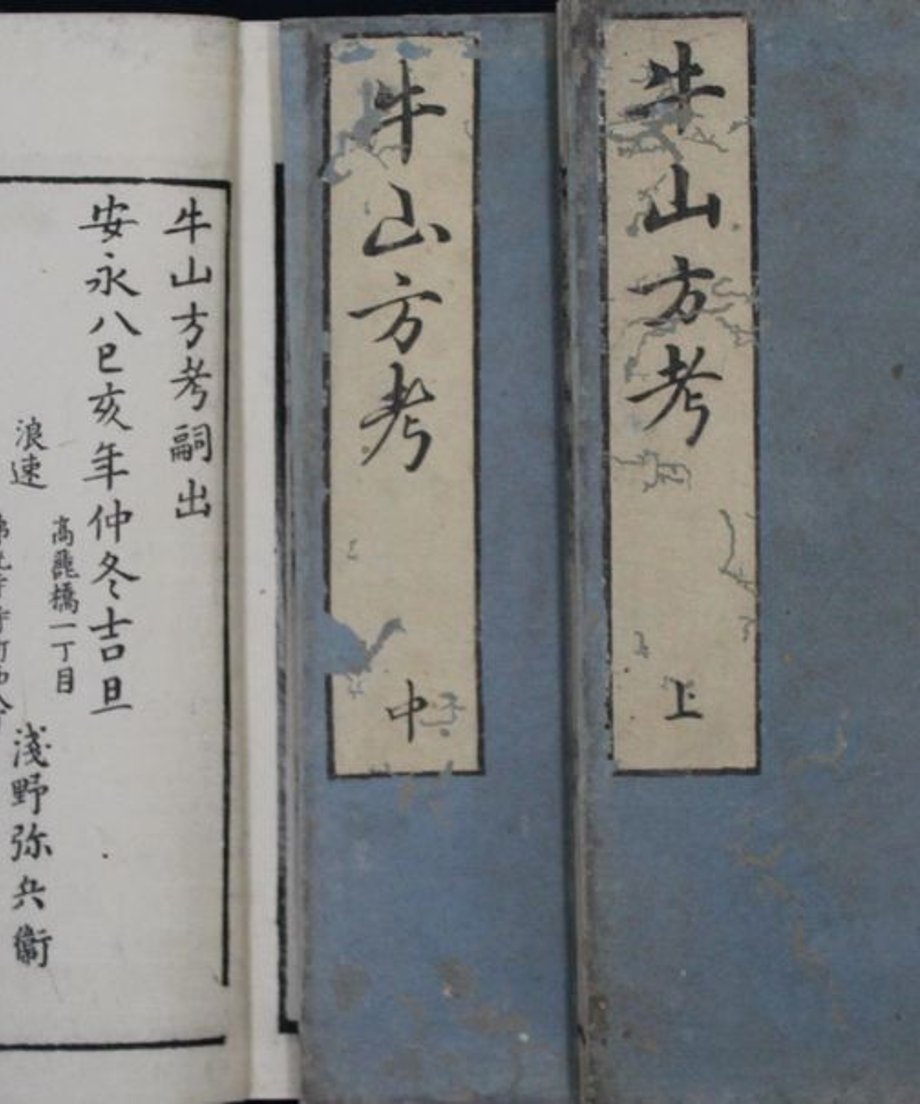 牛山方考
上
牛山方考
中
牛山方考嗣出
安永八己亥年仲冬吉旦
高麗橋一丁目
浪速
淺野弥兵衞